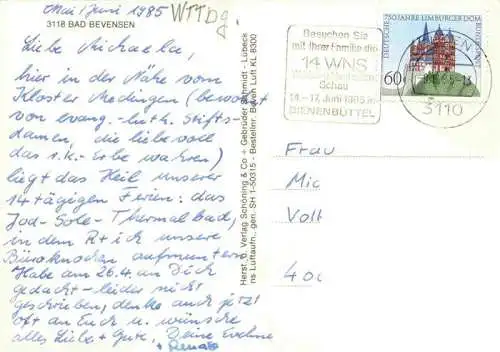 Mai/Juni 1985
WTTDg
3118 BAD BEVENSEN
Liebe Michaela,
hier in der Nähe vom
Kloster Medingen (bewohnt
von evang.-luth. Stifts-
damen, die liebevoll
das r.k.-Erbe wahren)
liegt das Heil unserer
14tägigen Ferien: das
Jod-Sole-Thermalbad,
in dem R + ich unsere
Büroknochen aufmuntern.
Habe am 26.4. an Dich
gedacht - leider nicht
geschrieben, denke auch jetzt
oft an Euch u. wünsche
alles Liebe + Gute, Deine Evchen
+ Renate
Herst. u. Verlag Schöning & Co + Gebrüder Schmidt - Lübeck
ns Luftaufn., gen. SH 1-50315 - Bestellnr. Baven Luft KL 8300
Besuchen Sie
mit Ihrer Familie die
14 WNS
Schau
14.-17. Juni 1985 in
BIENENBÜTTEL
DEUTSCHE
750 JAHRE LIMBURGER DOM
60
3110
Frau
Mic
Volt
400